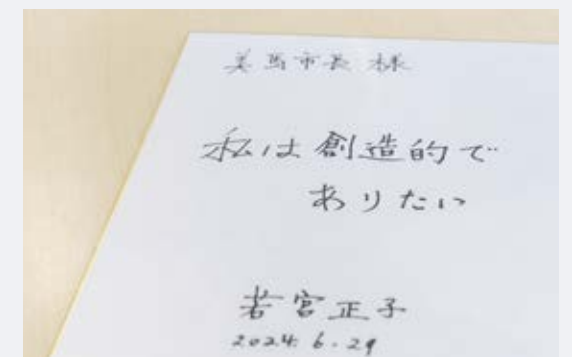 美馬市長 様
私は創造的で
ありたい
若宮正子
2024.6.29